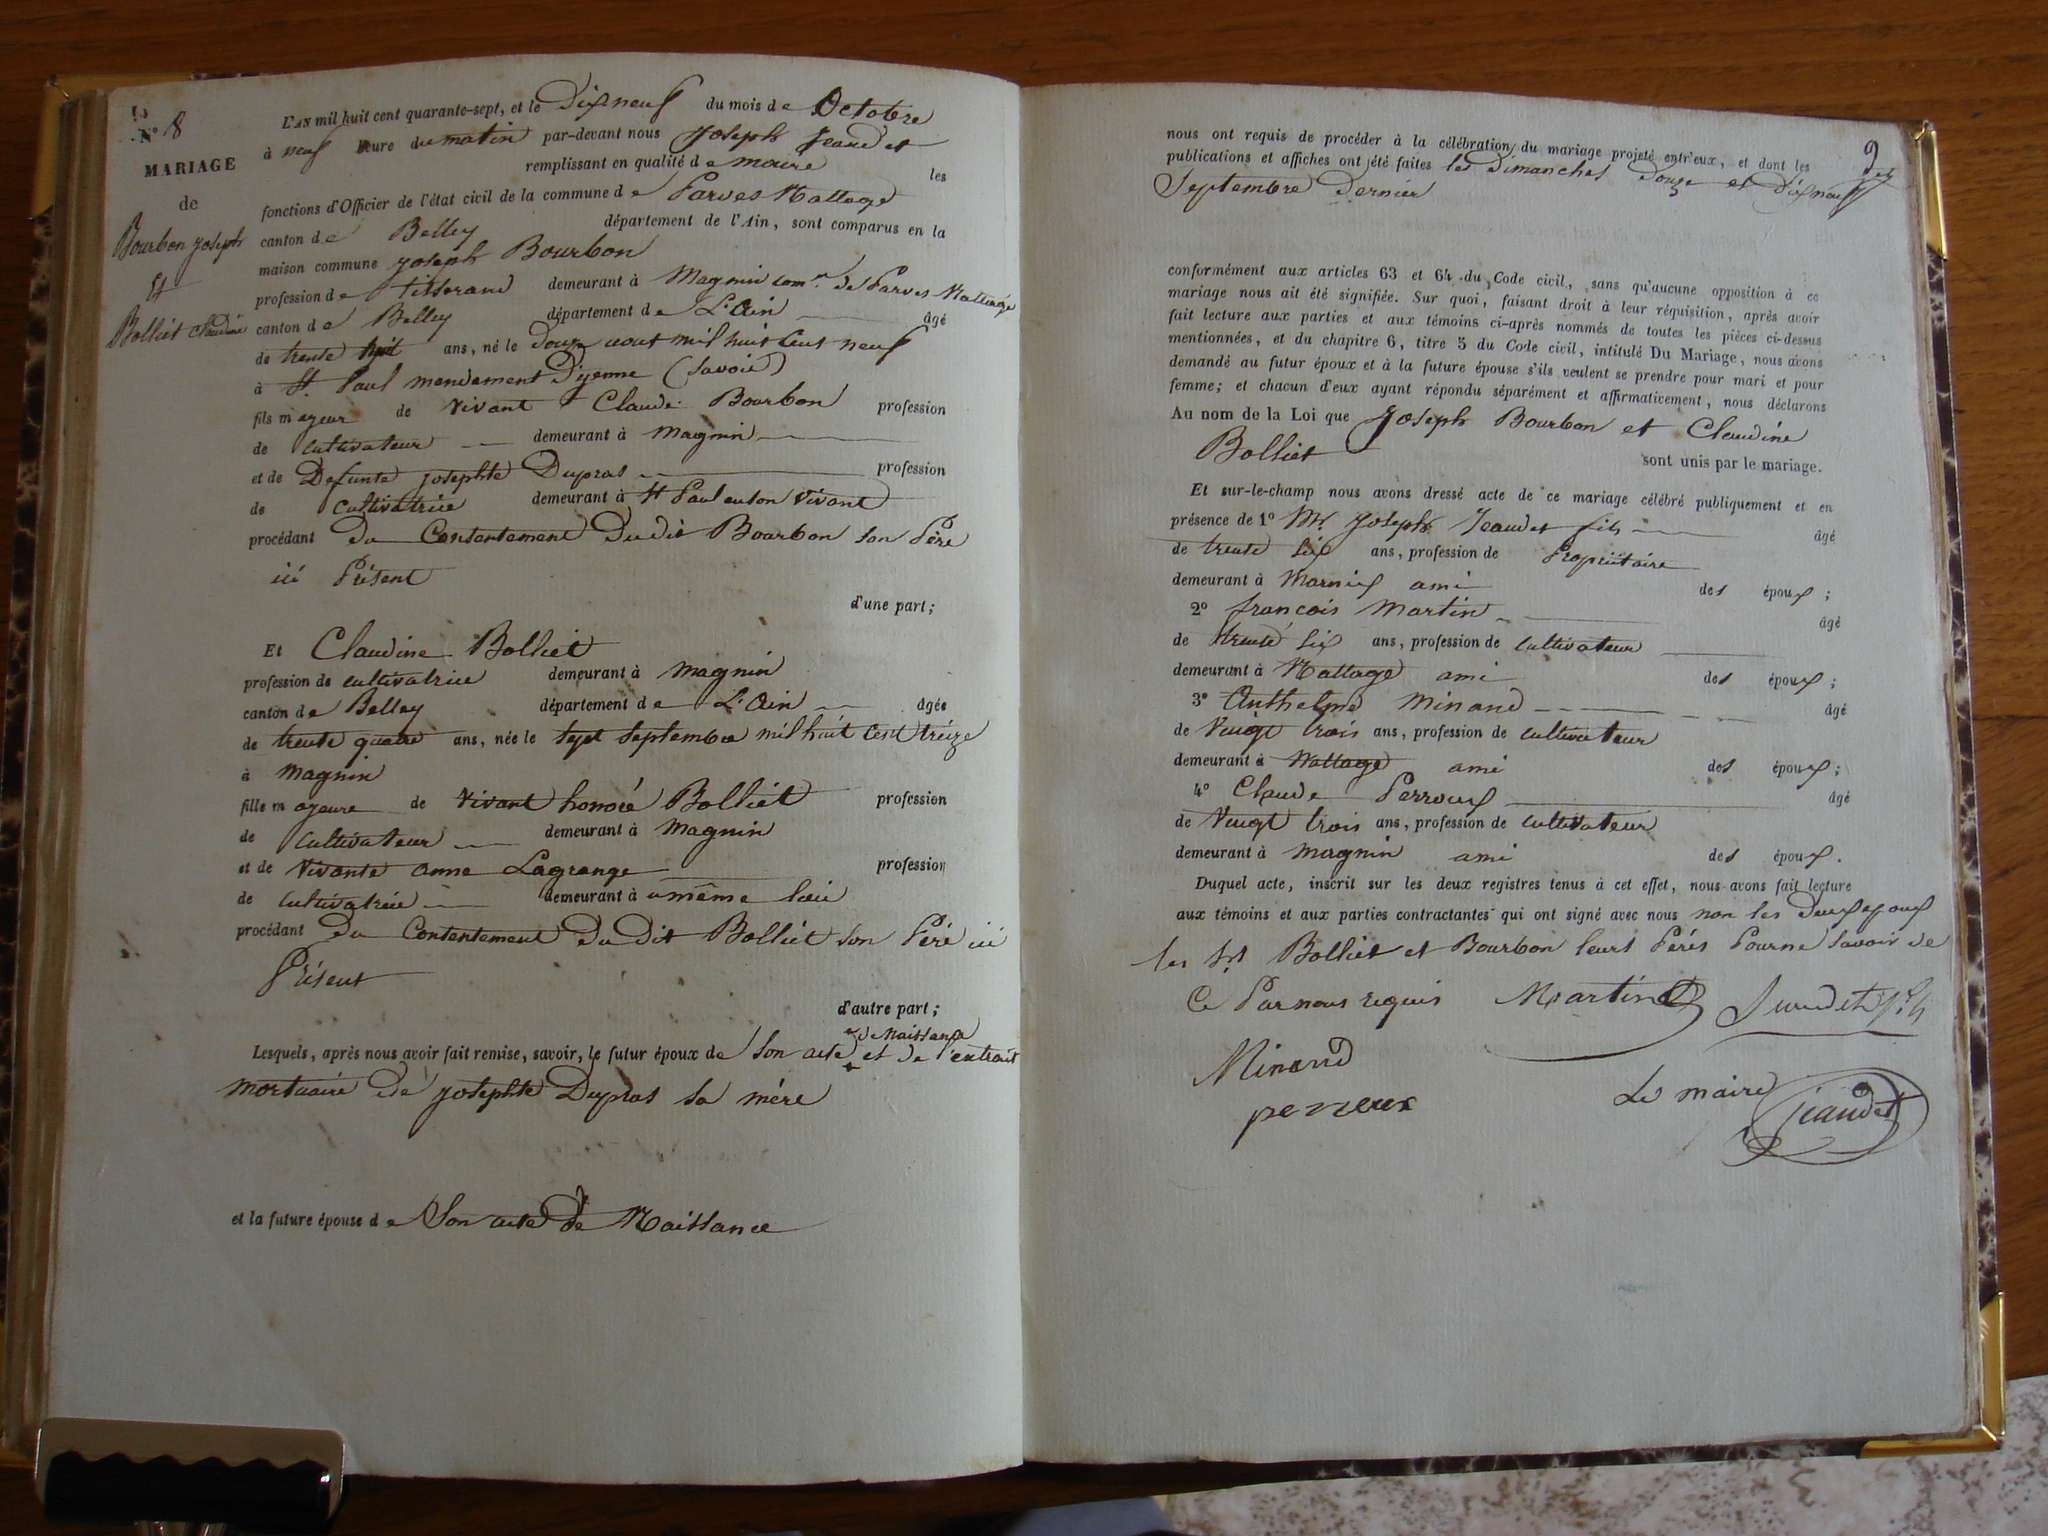 N° 8
MARIAGE
de
Bourbon Joseph
Et
Bolliet Claudine
L'AN mil huit cent quarante-sept, et le Dix neuf du mois de Octobre
à neuf heure du matin par-devant nous Joseph Jeandet
remplissant en qualité de maire les
fonctions d'Officier de l'état civil de la commune de Parves Nattage
canton de Belley département de l'Ain, sont comparus en la
maison commune Joseph Bourbon
profession de tisserand demeurant à Magnin com.ne de Parves Nattage
canton de Belley département de L'Ain âgé
de trente huit ans, né le Douze aout mil huit Cent neuf
à St Paul mendement D'yenne (Savoie)
fils mayeur de vivant Claude Bourbon profession
de cultivateur demeurant à Magnin
et de Defunte Josephte Dupras profession
de cultivatrice demeurant à St Paul en son Vivant
procédant du Consentement Du dit Bourbon son Père
ici Présent
d'une part;
Et Claudine Bolliet
profession de cultivatrice demeurant à magnin
canton de Belley département de L'Ain âgée
de trente quatre ans, née le sept septembre mil huit Cent treize
à magnin
fille mayeure de vivant honoré Bolliet profession
de cultivateur demeurant à magnin
et de vivante anne Lagrange profession
de cultivatrice demeurant à u même lieu
procédant du Consentement Du Dit Bolliet son Péré ici
Présent
d'autre part;
de Naissance
Lesquels, après nous avoir fait remise, savoir, le futur époux de son acte et de l'extrait
mortuaire de Josephte Dupras sa mére
et la future épouse de Son acte de Naissance
9
nous ont requis de procéder à la célébration du mariage projeté entr'eux, et dont les
publications et affiches ont été faites les Dimanches Douze et Dix neuf
Septembre Dernier
conformément aux articles 63 et 64 du Code civil, sans qu'aucune opposition à ce
mariage nous ait été signifiée. Sur quoi, faisant droit à leur réquisition, après avoir
fait lecture aux parties et aux témoins ci-après nommés de toutes les pièces ci-dessus
mentionnées, et du chapitre 6, titre 5 du Code civil, intitulé Du Mariage, nous avons
demandé au futur époux et à la future épouse s'ils veulent se prendre pour mari et pour
femme; et chacun d'eux ayant répondu séparément et affirmativement, nous déclarons
Au nom de la Loi que Joseph Bourbon et Claudine
Bolliet sont unis par le mariage.
Et sur-le-champ nous avons dressé acte de ce mariage célébré publiquement et en
présence de 1° Mr. Joseph Jeandet fils âgé
de trente six ans, profession de Propriétaire
demeurant à ami des époux;
2° françois Martin âgé
de trente six ans, profession de cultivateur
demeurant à Nattage ami des époux;
3° Anthelme Minand âgé
de Vingt trois ans, profession de cultivateur
demeurant à Nattage ami des époux;
4° Claude Perroux âgé
de Vingt trois ans, profession de cultivateur
demeurant à magnin ami des époux.
Duquel acte, inscrit sur les deux registres tenus à cet effet, nous avons fait lecture
aux témoins et aux parties contractantes qui ont signé avec nous non les deux epoux
les Srs Bolliet et Bourbon leurs Pérés Pour ne savoir de
Ce Par nous requis Martin Jeandet fils
Minand
perroux
Le maire
jeandet